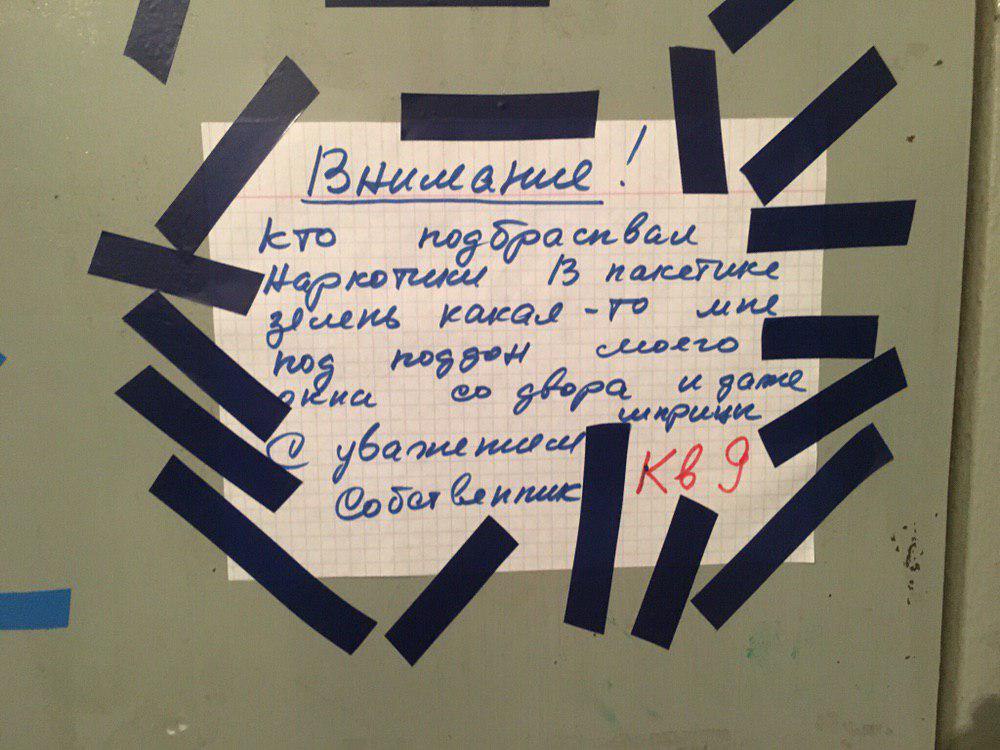 Внимание!
Кто подбрасывал
Наркотики В пакетике
зелень какая-то мне
под поддон моего
окна со двора и даже
шприцы
С уважением
Собственник Кв 9